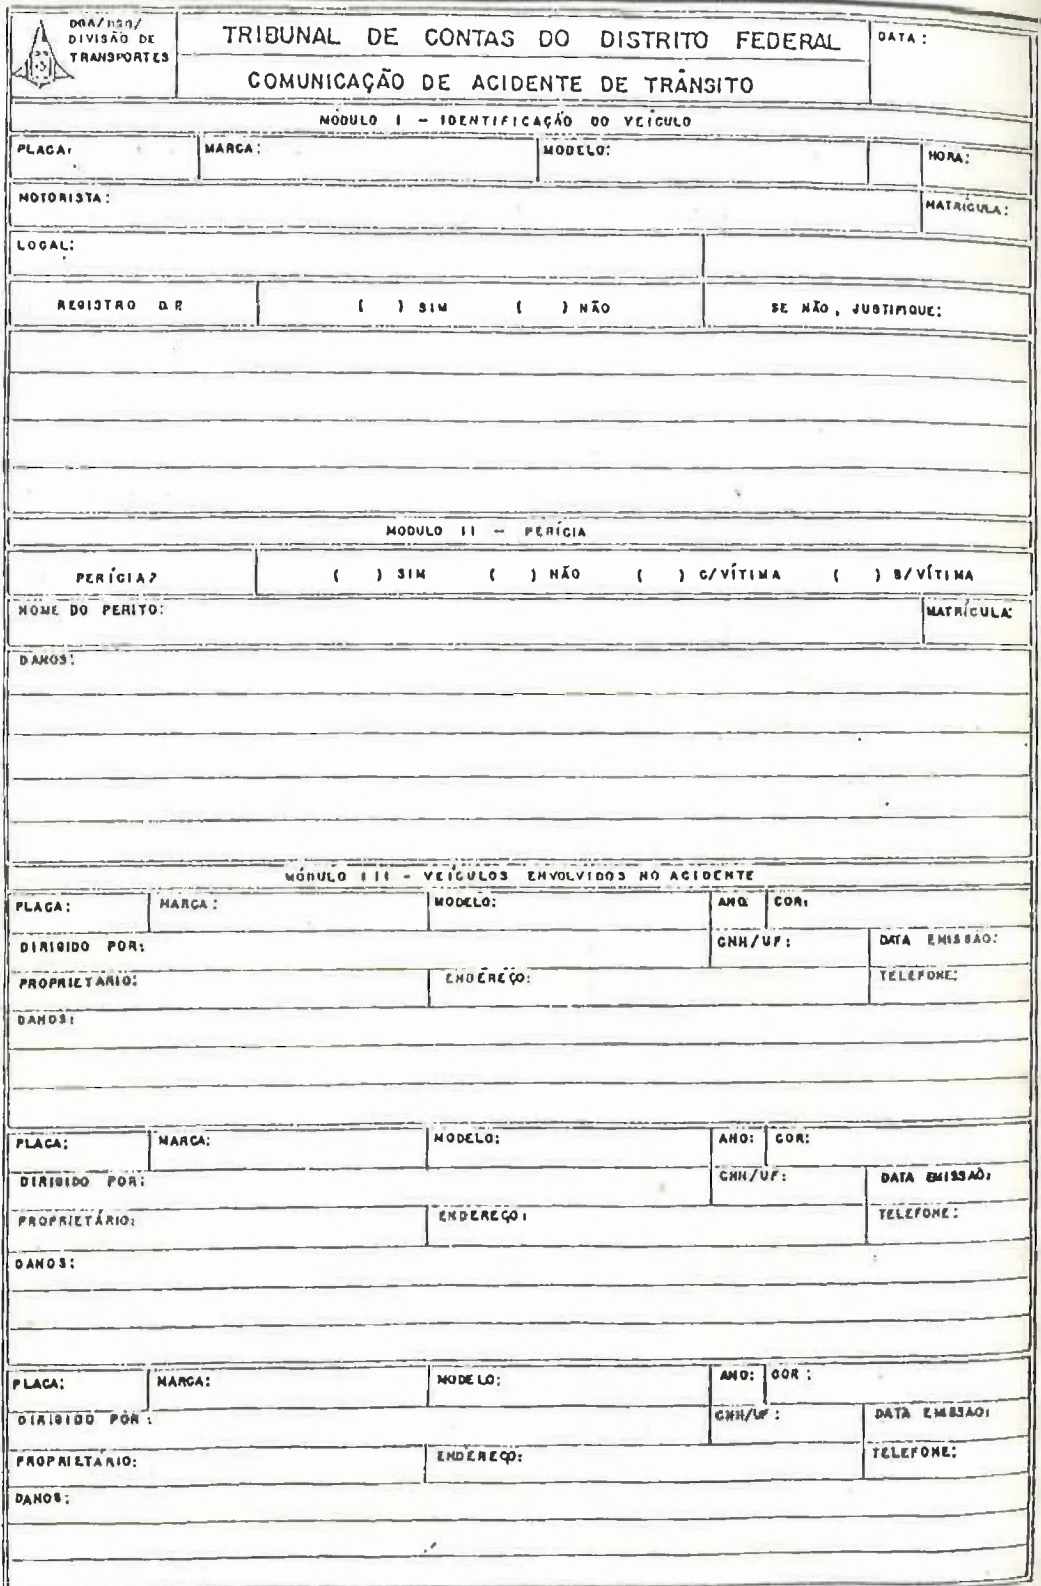 DGA/DSG/
DIVISÃO DE
TRANSPORTES
TRIBUNAL DE CONTAS DO DISTRITO FEDERAL
COMUNICAÇÃO DE ACIDENTE DE TRÂNSITO
DATA:
MÓDULO I - IDENTIFICAÇÃO DO VEÍCULO
PLACA: MARCA: MODELO: HORA:
MOTORISTA: MATRÍCULA:
LOCAL:
REGISTRO D.P. ( ) SIM ( ) NÃO SE NÃO, JUSTIFIQUE:
MODULO II - PERÍCIA
PERÍCIA? ( ) SIM ( ) NÃO ( ) C/VÍTIMA ( ) S/VÍTIMA
NOME DO PERITO: MATRÍCULA:
DANOS:
MÓDULO III - VEÍCULOS ENVOLVIDOS NO ACIDENTE
PLACA: MARCA: MODELO: ANO: COR:
DIRIGIDO POR: CNH/UF: DATA EMISSÃO:
PROPRIETÁRIO: ENDEREÇO: TELEFONE:
DANOS:
PLACA: MARCA: MODELO: ANO: COR:
DIRIGIDO POR: CNH/UF: DATA EMISSÃO:
PROPRIETÁRIO: ENDEREÇO: TELEFONE:
DANOS:
PLACA: MARCA: MODELO: ANO: COR:
DIRIGIDO POR: CNH/UF: DATA EMISSÃO:
PROPRIETÁRIO: ENDEREÇO: TELEFONE:
DANOS: